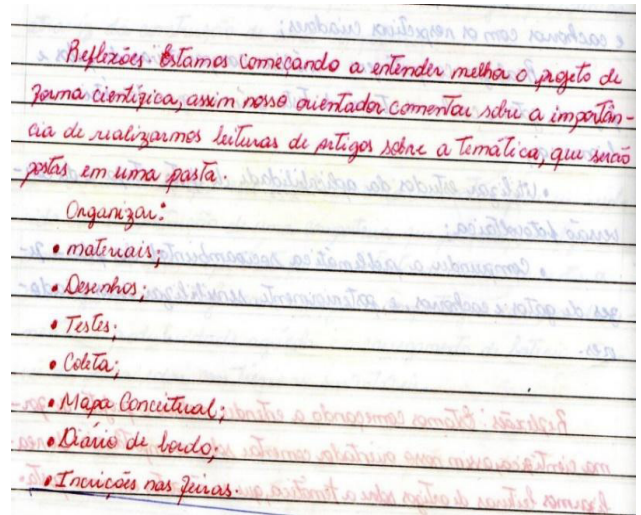 Reflexões Estamos começando a entender melhor o projeto de
forma científica, assim nosso orientador comentou sobre a importân-
cia de realizarmos leituras de artigos sobre a temática, que serão
postas em uma pasta.
Organizar:
• materiais;
• Desenhos;
• Testes;
• Coleta;
• Mapa Conceitual;
• Diário de bordo;
• Incrições nas feiras.